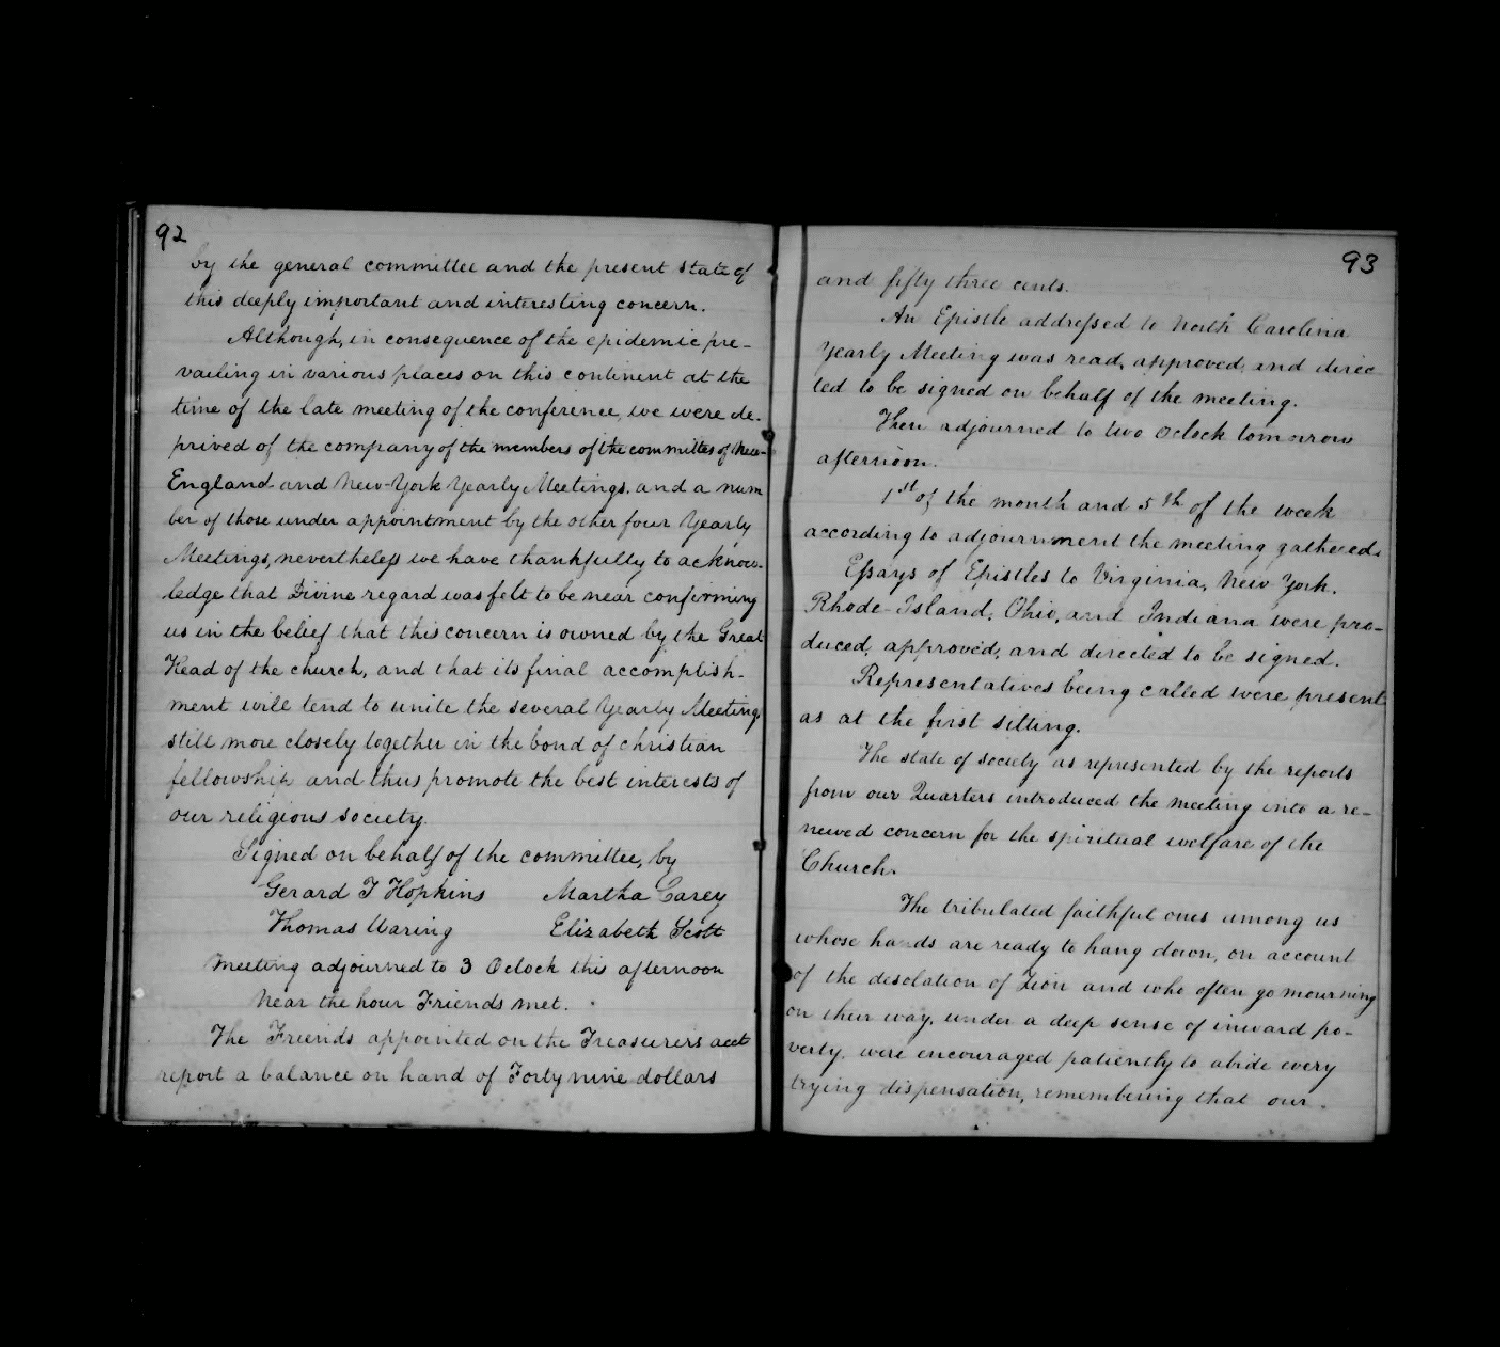 92
by the general committee and the present state of
this deeply important and interesting concern.
Although, in consequence of the epidemic pre-
vailing in various places on this continent at the
time of the late meeting of the conference, we were de-
prived of the company of the members of the committes of New-
England and New-York Yearly Meetings, and a num
ber of those under appointment by the other four Yearly
Meetings, nevertheless we have thankfully to acknow-
ledge that Divine regard was felt to be near confirming
us in the belief that this concern is owned by the Great
Head of the church, and that its final accomplish-
ment will tend to unite the several Yearly Meetings
still more closely together in the bond of christian
fellowship and thus promote the best interests of
our religious society.
Signed on behalf of the committee, by
Gerard T Hopkins Martha Carey
Thomas Waring Elizabeth Scott
Meeting adjourned to 3 Oclock this afternoon
Near the hour Friends met.
The Friends appointed on the Treasurers acct
report a balance on hand of Forty nine dollars
93
and fifty three cents.
An Epistle addressed to North Carolina
Yearly Meeting was read, approved, and direc
ted to be signed on behalf of the meeting.
Then adjourned to two Oclock tomorrow
afternoon.
1st of the month and 5th of the week
according to adjournment the meeting gathered.
Essays of Epistles to Virginia, New York,
Rhode-Island, Ohio, and Indiana were pro-
duced, approved, and directed to be signed.
Representatives being called were present
as at the first sitting.
The state of society as represented by the reports
from our Quarters introduced the meeting into a re-
newed concern for the spiritual welfare of the
Church.
The tribulated faithful ones among us
whose hands are ready to hang down, on account
of the desolation of Zion and who often go mourning
on their way, under a deep sense of inward po-
verty, were encouraged patiently to abide every
trying dispensation, remembering that our